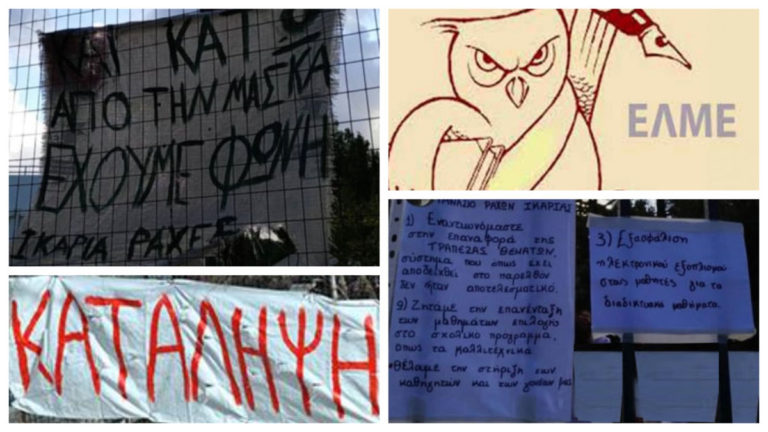 ΚΑΙ ΚΑΤΩ
ΑΠΟ ΤΗΝ ΜΑΣΚΑ
ΕΧΟΥΜΕ ΦΩΝΗ
ΙΚΑΡΙΑ ΡΑΧΕΣ
ΕΛΜΕ
ΚΑΤΑΛΗΨΗ
ΡΑΧΩΝ ΙΚΑΡΙΑΣ
1) Εναντιωνόμαστε
στην επαναφορά της
ΤΡΑΠΕΖΑΣ ΘΕΜΑΤΩΝ,
σύστημα που όπως έχει
αποδειχθεί στο παρελθόν
δεν ήταν αποτελεσματικό.
2) Ζητάμε την επανένταξη
των μαθημάτων επιλογής
στο σχολικό πρόγραμμα,
όπως τα καλλιτεχνικά
•Θέλαμε την στήριξη των
καθηγητών και των γονιών μας
3) Εξασφάλιση
ηλεκτρονικού εξοπλισμού
στους μαθητές για τα
διαδικτυακά μαθήματα.